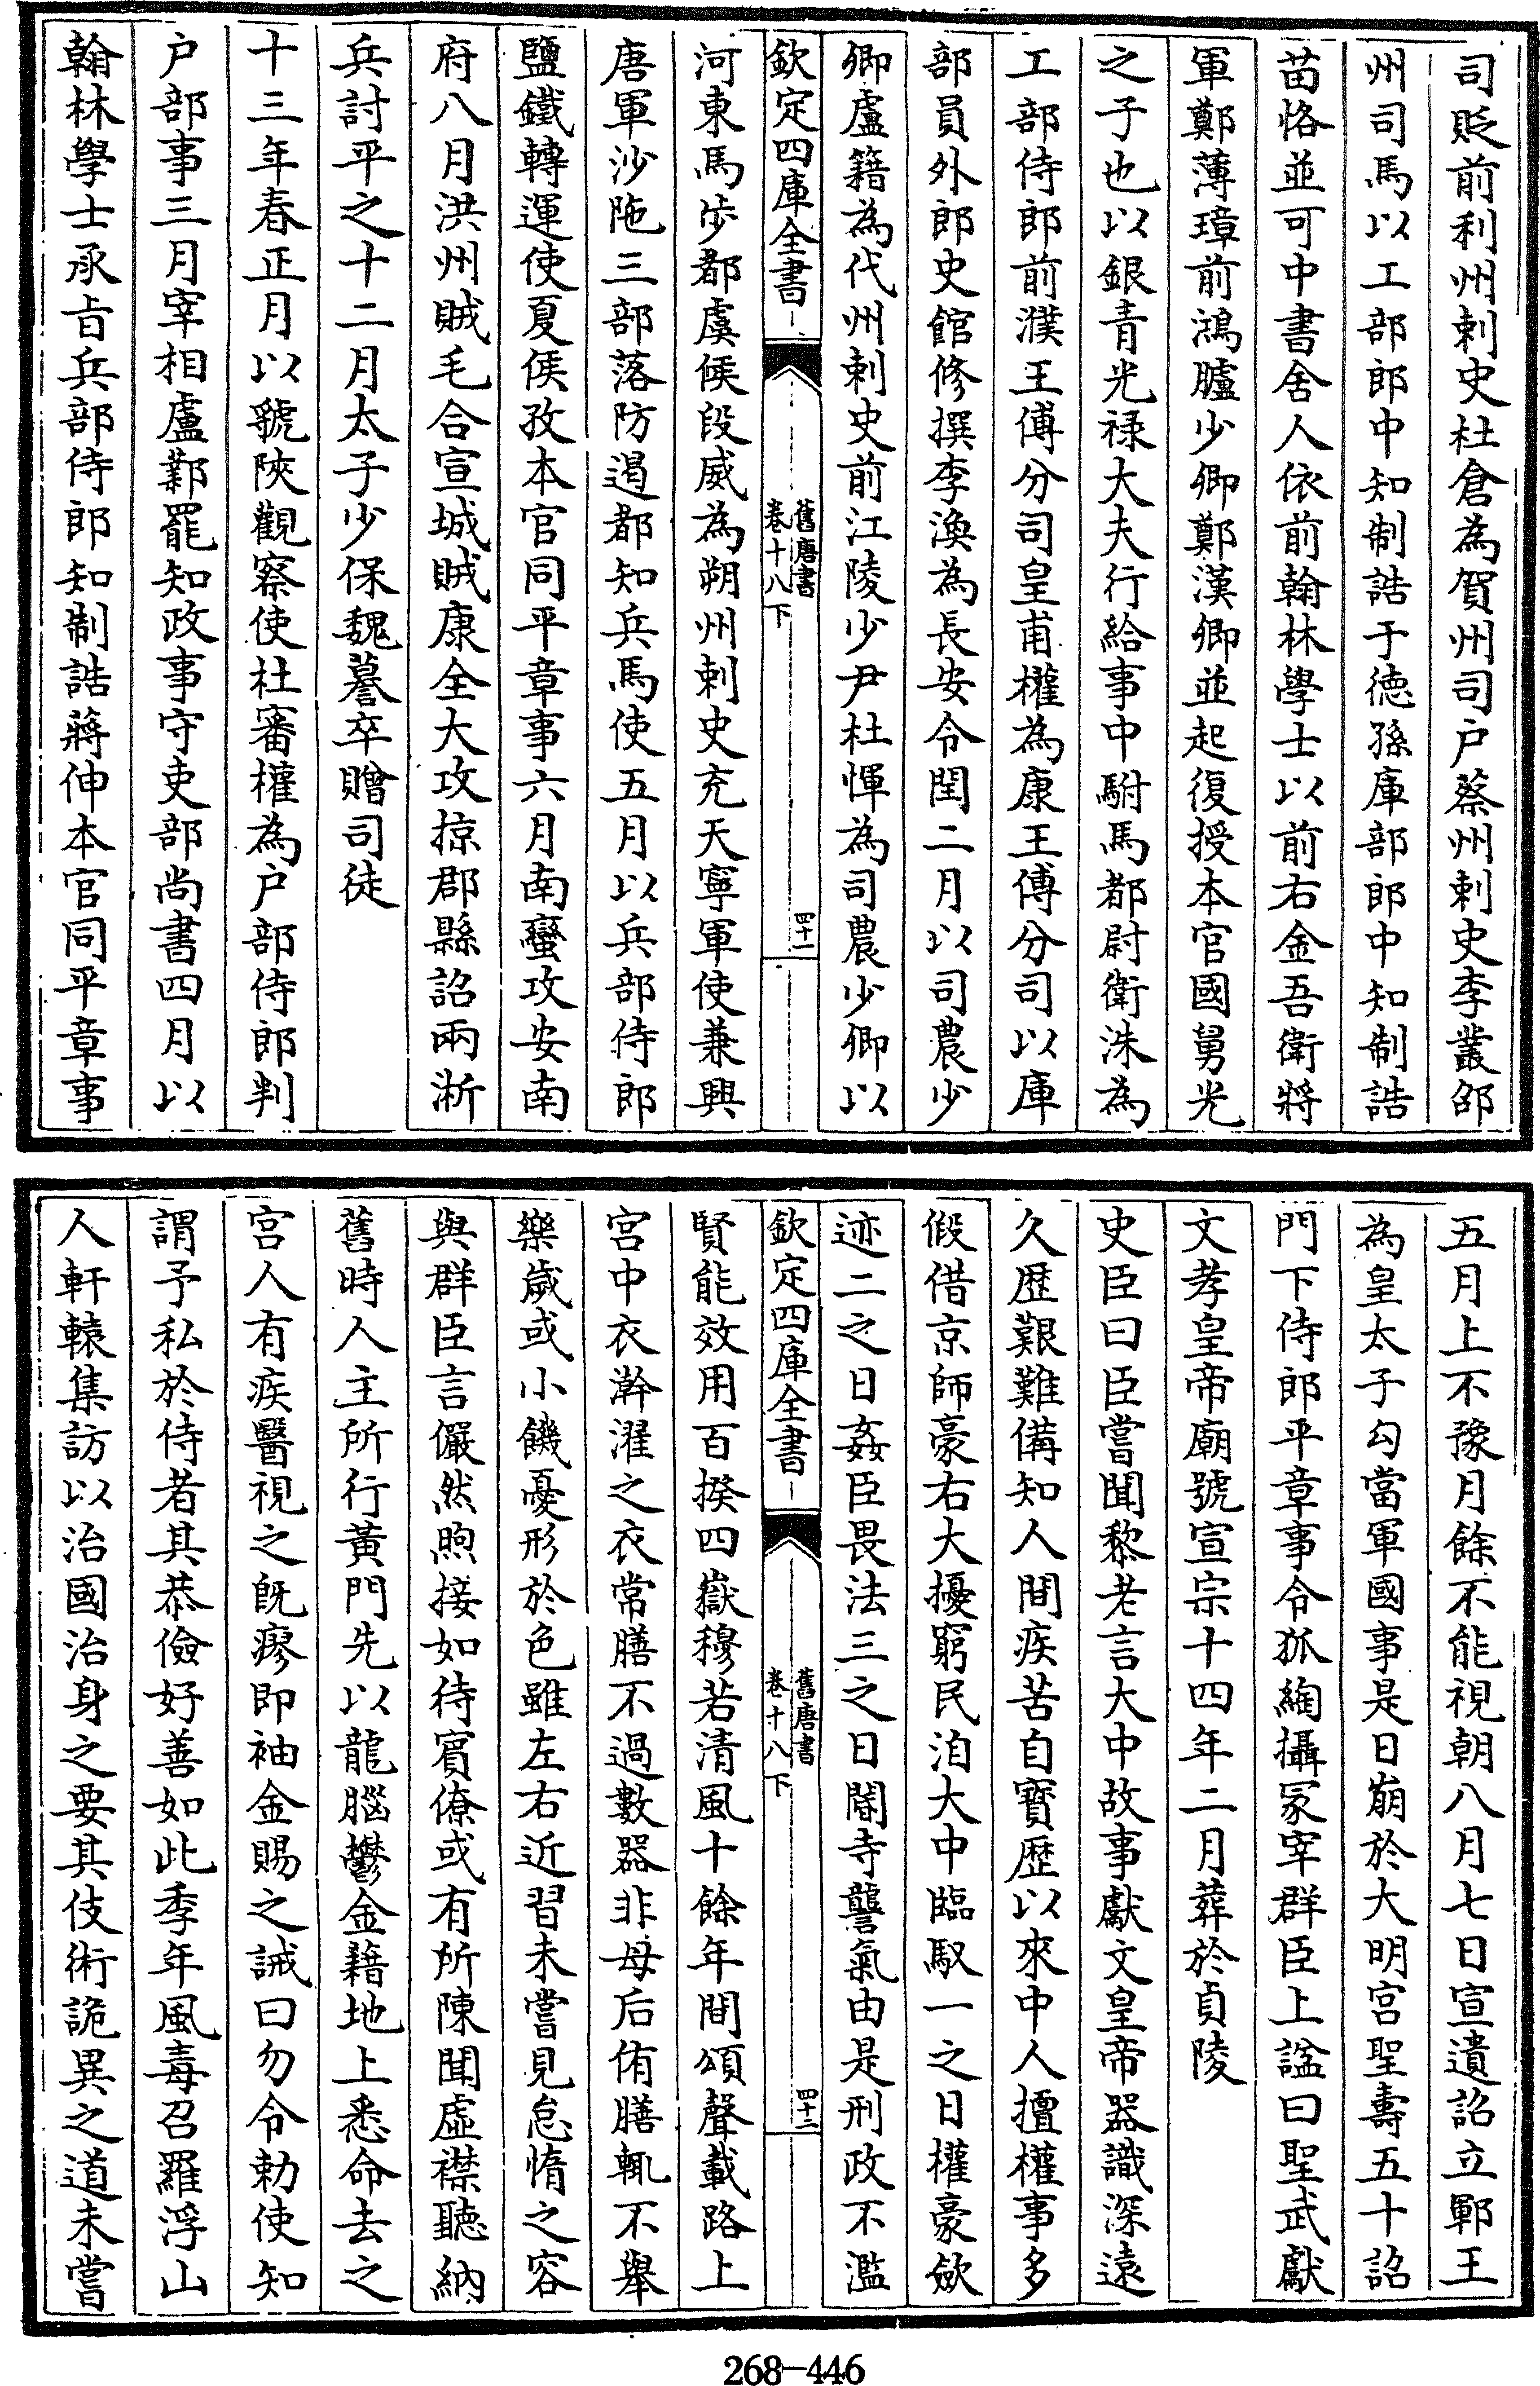 司貶前利州刺史杜倉為賀州司户蔡州刺史李叢邵
州司馬以工部郎中知制誥于徳孫庫部郎中知制誥
苗恪並可中書舍人依前翰林學士以前右金吾衛將
軍鄭薄璋前鴻臚少卿鄭漢卿並起復授本官國舅光
之子也以銀青光禄大夫行給事中駙馬都尉衛洙為
工部侍郎前濮王傅分司皇甫權為康王傅分司以庫
部員外郎史館修撰李渙為長安令閏二月以司農少
卿盧籍為代州刺史前江陵少尹杜惲為司農少卿以
欽定四庫全書
舊唐書
卷十八下
四十一
河東馬步都虞候段威為朔州刺史充天寧軍使兼興
唐軍沙陁三部落防遏都知兵馬使五月以兵部侍郎
鹽鐵轉運使夏侯孜本官同平章事六月南蠻攻安南
府八月洪州賊毛合宣城賊康全大攻掠郡縣詔兩浙
兵討平之十二月太子少保魏謩卒贈司徒
十三年春正月以虢陜觀察使杜審權為户部侍郎判
户部事三月宰相盧鄴罷知政事守吏部尚書四月以
翰林學士承㫖兵部侍郎知制誥蔣伸本官同平章事
五月上不豫月餘不能視朝八月七日宣遺詔立鄆王
為皇太子勾當軍國事是日崩於大明宫聖壽五十詔
門下侍郎平章事令狐綯攝冡宰群臣上諡曰聖武獻
文孝皇帝廟號宣宗十四年二月葬於貞陵
史臣曰臣嘗聞黎老言大中故事獻文皇帝器識深遠
久歴艱難備知人間疾苦自寶歴以來中人擅權事多
假借京師豪右大擾窮民洎大中臨馭一之日權豪歛
迹二之日姦臣畏法三之日閽寺讋氣由是刑政不濫
欽定四庫全書
舊唐書
卷十八下
四十二
賢能效用百揆四嶽穆若清風十餘年間頌聲載路上
宫中衣澣濯之衣常膳不過數器非母后侑膳輒不舉
樂歲或小饑憂形於色雖左右近習未嘗見怠惰之容
與群臣言儼然煦接如待賓僚或有所陳聞虛襟聽納
舊時人主所行黄門先以龍腦鬱金藉地上悉命去之
宫人有疾醫視之旣瘳即袖金賜之誡曰勿令勅使知
謂予私於侍者其恭儉好善如此季年風毒召羅浮山
人軒轅集訪以治國治身之要其伎術詭異之道未嘗
268-446